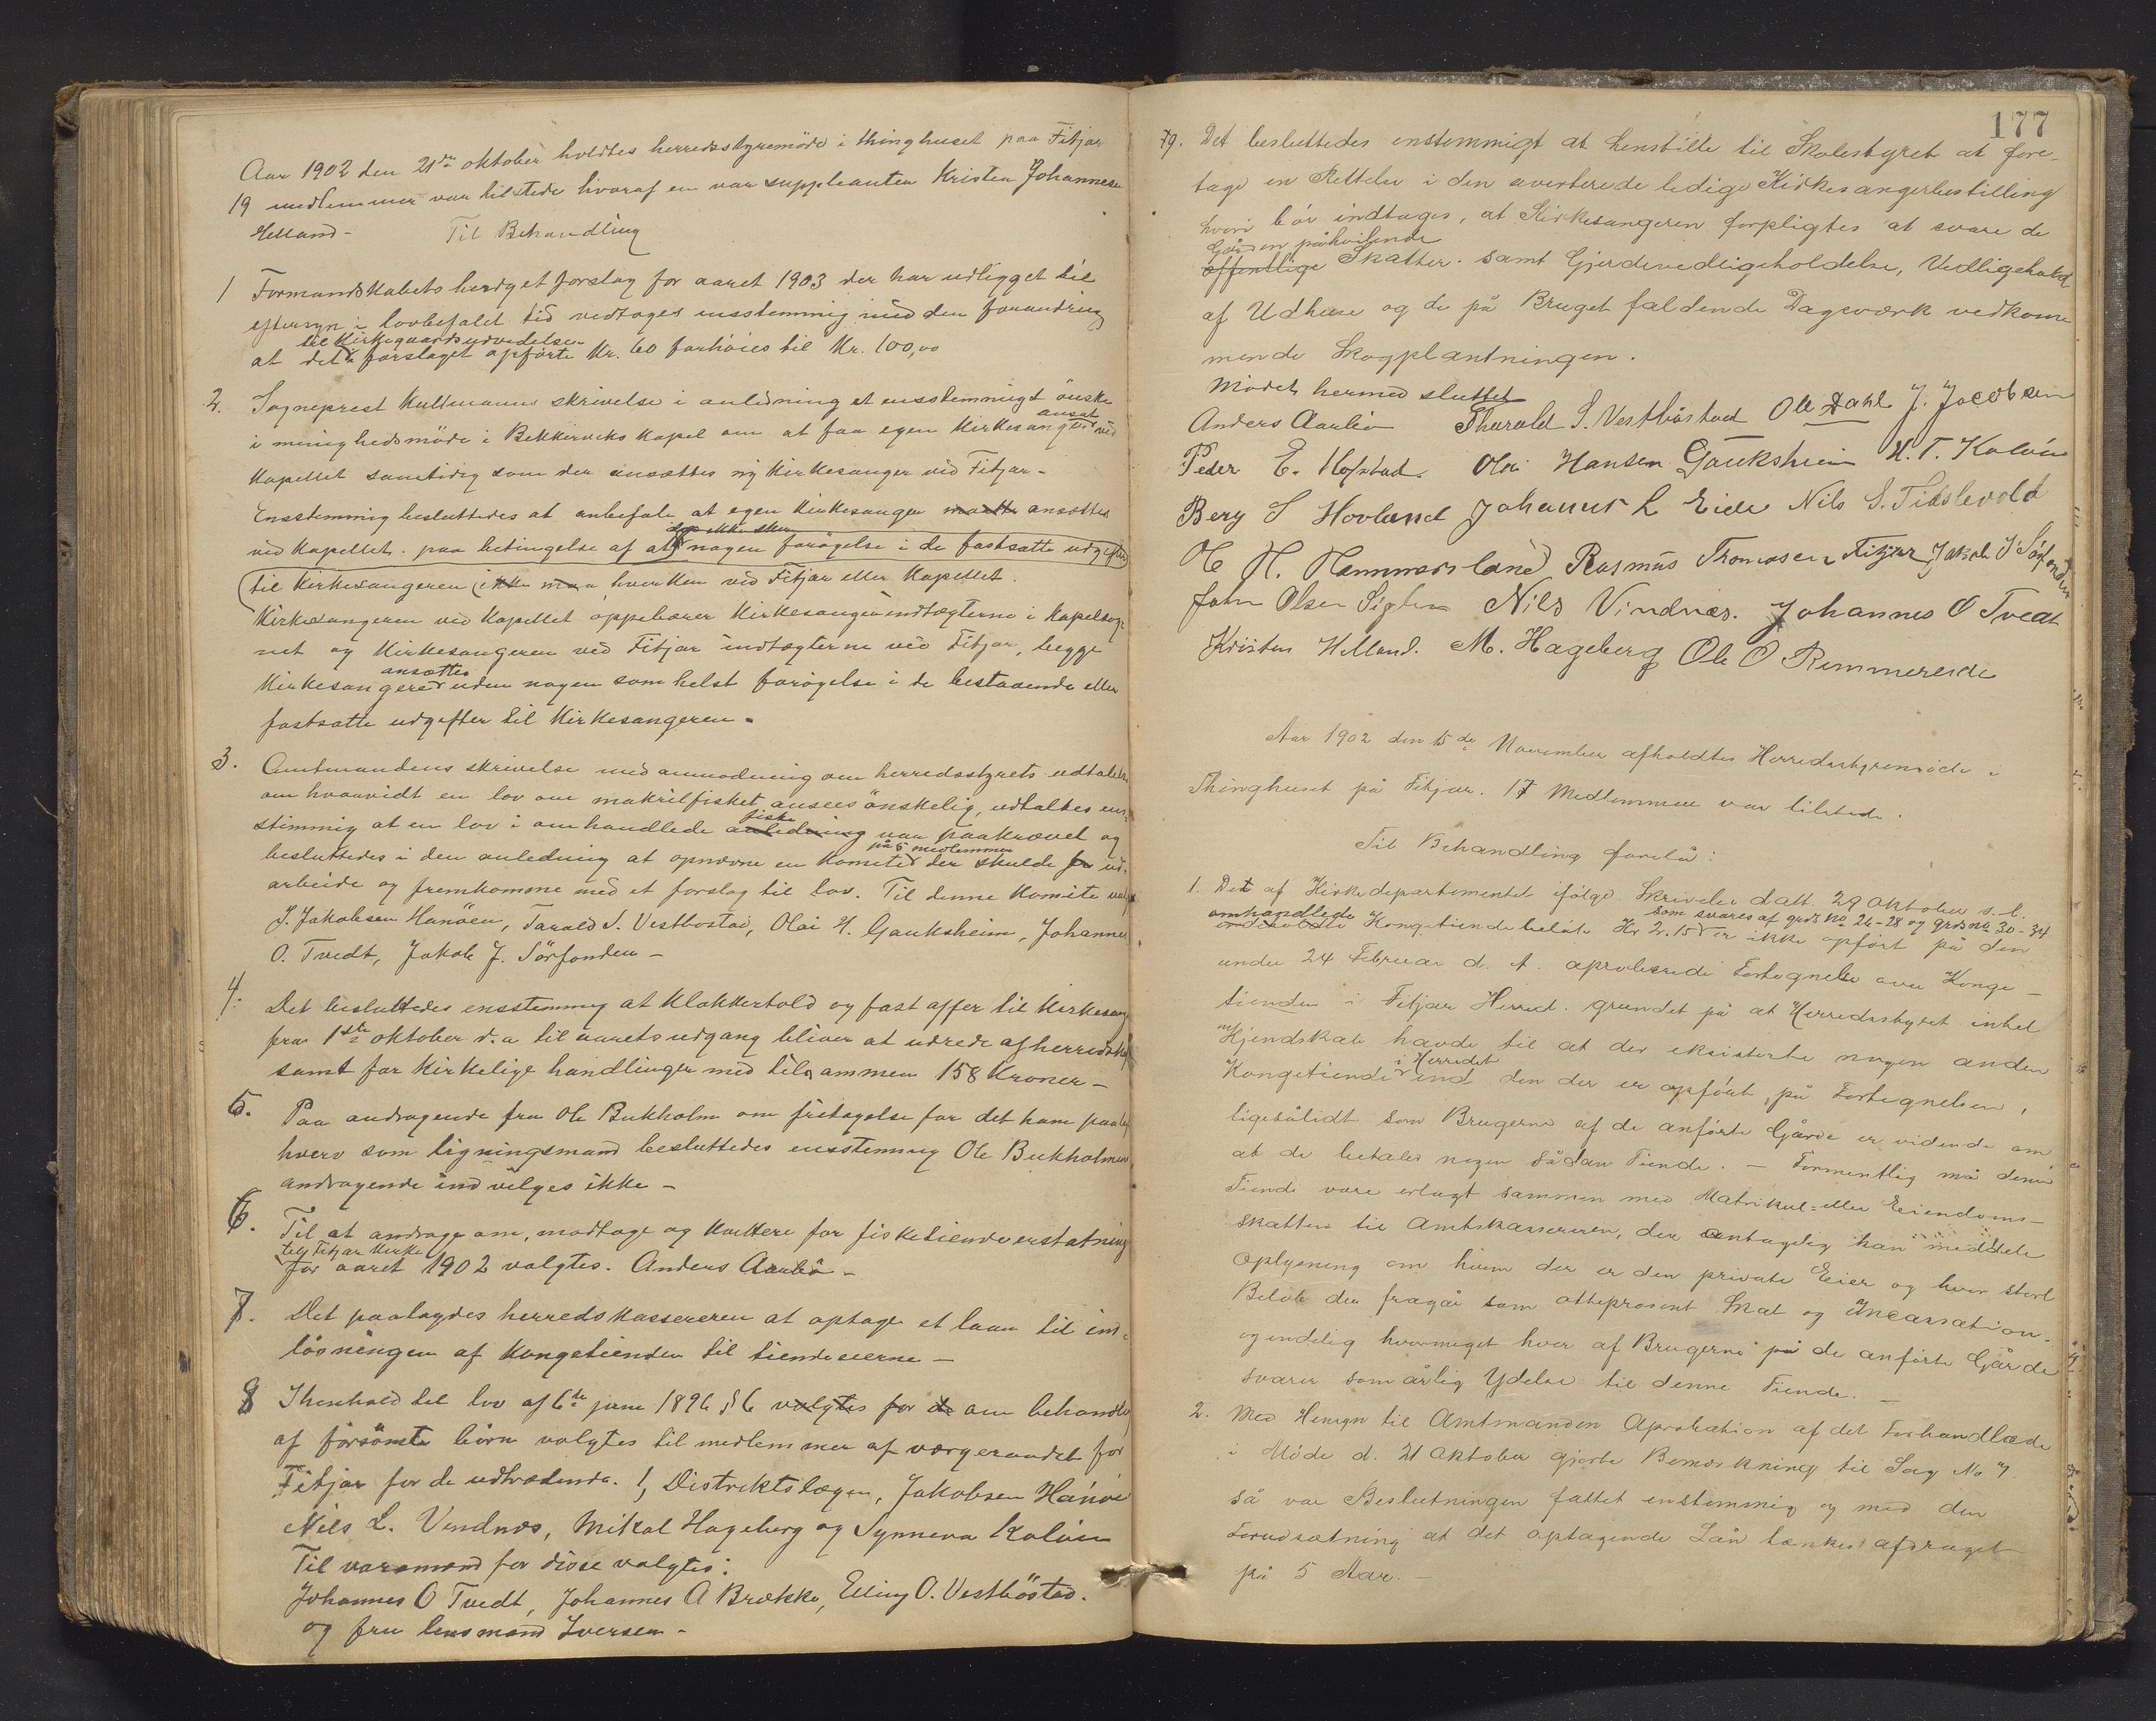 Aar 1902 den 21de oktober holdtes herredsstyremöde i thinghuset paa Fitjar
19 medlemmer var tilstede hvoraf en var suppleanten Kristen Johannesen
Helland -
Til Behandling
1 Formandskabets budget forslag for aaret 1903 der har udligget til
eftersyn i lovbefalet tid vedtoges ensstemmig med den forandring
til Kirkegaardsudvidelse
at det i forslaget opförte Kr. 60 forhöies til Kr. 100,00
2. Sogneprest Kullmanns skrivelse i anledning et ensstemmigt önske
ansat
i menighedsmöde i Bekkerviks Kapel om at faa egen Kirkesanger ved
Kapellet samtidig som der ansættes ny Kirkesanger ved Fitjar -
Ensstemmig besluttedes at anbefale at egen Kirkesanger maatte ansættes
der ikke sker
ved Kapellet. paa betingelse af at nogen forögelse i de fastsatte udgifter
til Kirkesangeren ikke maa hverken ved Fitjar eller Kapellet.
Kirkesangeren ved Kapellet oppebærer Kirkesangerindtægterne i Kapelsog-
net og Kirkesangeren ved Fitjar indtægterne ved Fitjar, begge
ansættes
Kirkesangere uden nogen som helst forögelse i de bestaaende eller
fastsatte udgifter til Kirkesangeren.
3. Amtmandens skrivelse med anmodning om herredsstyrets udtalelse
om hvorvidt en lov om makrilfisket ansees önskelig, udtaltes ens-
fiske
stimmig at en lov i omhandlede anledning var paakrævet og
på 5 medlemmer
besluttedes i den anledning at opnævne en Komite der skulde for ud-
arbeide og fremkomme med et forslag til lov. Til denne Komite valg
J. Jakobsen Hanöen, Tarald S. Vestbostad, Olai H. Gauksheim, Johannes
O. Tvedt, Jakob J. Sörfonden -
4. Det besluttedes ensstemmig at Klokkertold og fast offer til Kirkesang
fra 1ste oktober d.a til aarets udgang bliver at udrede af herredsk
samt for Kirkelige handlinger med tilsammen 158 Kroner -
5. Paa andragende fra Ole Bukholm om fritagelse for det ham paalag
hverv som ligningsmand besluttedes ensstemmig Ole Bukholmen
andragende indvilges ikke -
6. Til at andrage om, modtage og kvittere for fisketiendeerstatning
til Fitjar Kirke
for aaret 1902 valgtes. Anders Aarbö -
7. Det paalagdes herredskassereren at optage et laan til ind-
lösningen af Kongetienden til tiendeeierne -
8 I henhold til lov af 6te juni 1896 § 6 valgtes for de om behandle
af forsömte börn valgtes til medlemmer af værgeraadet for
Fitjar for de udtrædende. 1, Distriktslægen, Jakobsen Hanöe
Nils L. Vindnes, Mikal Hageberg og Synneva Kalöen
Til varamænd for disse valgtes:
Johannes O Tvedt, Johannes A Brække, Elling O. Vestböstad.
og fru lensmand Iversen -
177
9. Det besluttedes enstemmigt at henstille til Skolestyret at fore-
tage en Rettelse i den averterede ledige Kirkesangerbestilling
hvori bör indtages, at Kirkesangeren forpligtes at svare de
Gården påhvilende
offentlige Skatter. samt Gjerdevedligeholdelse, Vedligehold
af Udhuse og de på Bruget faldende Dagsværk vedkom-
mende Skogplantningen.
Mödet hermed sluttet
Anders Aarbö Tharald S. Vestböstad Ole Dahl J. Jacobsen
Peder E. Hofstad. Olai Hansen Gauksheim H. T. Kalöen
Berg S Hovland Johannes L Eide Nils S. Tislevold
O H. Hammersland Rasmus Thomasen Fitjar Jakob J Sörfonden
John Olsen Nils Vindnæs. Johannes O Tveat
Kristen Helland. M. Hageberg Ole O Rimmereide
Aar 1902 den 15de November afholdtes Herredsstyremöde i
Thinghuset på Fitjar. 17 Medlemmer var tilstede.
Til Behandling forelå:
1. Det af Kirkedepartementet ifölge Skrivelse datt. 29 oktober s. l.
omhandlede som svares af grds No 26-28 og grds no 30-34
indholdte Kongetiendebelöb Kr 2.15 er ikke opfört på den
under 24 Februar d. A. aproberede Fortegnelse over Konge-
tienden i Fitjar Herred. grundet på at Herredsstyret inhet
Kjendskab havde til at der eksisterte nogen anden
i Herredet
Kongetiende end den der er opfört på Fortegnelsen,
ligesålidt som Brugerne af de anförte Gårde er vidende om
at de betaler nogen sådan Tiende. - Formentlig må denne
Tiende være erlagt sammen med Matrikul= eller Eiendoms-
skatten til Amtskassereren, der antagelig kan meddele
Oplysning om hvem der er den private Eier og hvor stort
Belöb der fragår som otteprosent Skat og Incassation.
og endelig hvormeget hver af Brugerne på de anförte Gårde
svarer som årlig Ydelse til denne Tiende. -
2. Med Hensyn til Amtmanden Aprobation af det Forhandlede
i Möde d. 21 Oktober gjorte Bemærkning til Sag No 7.
så var Beslutningen fattet enstemmig og med den
Forudsætning at det optagende Lån tænkes afdraget
på 5 Aar. -